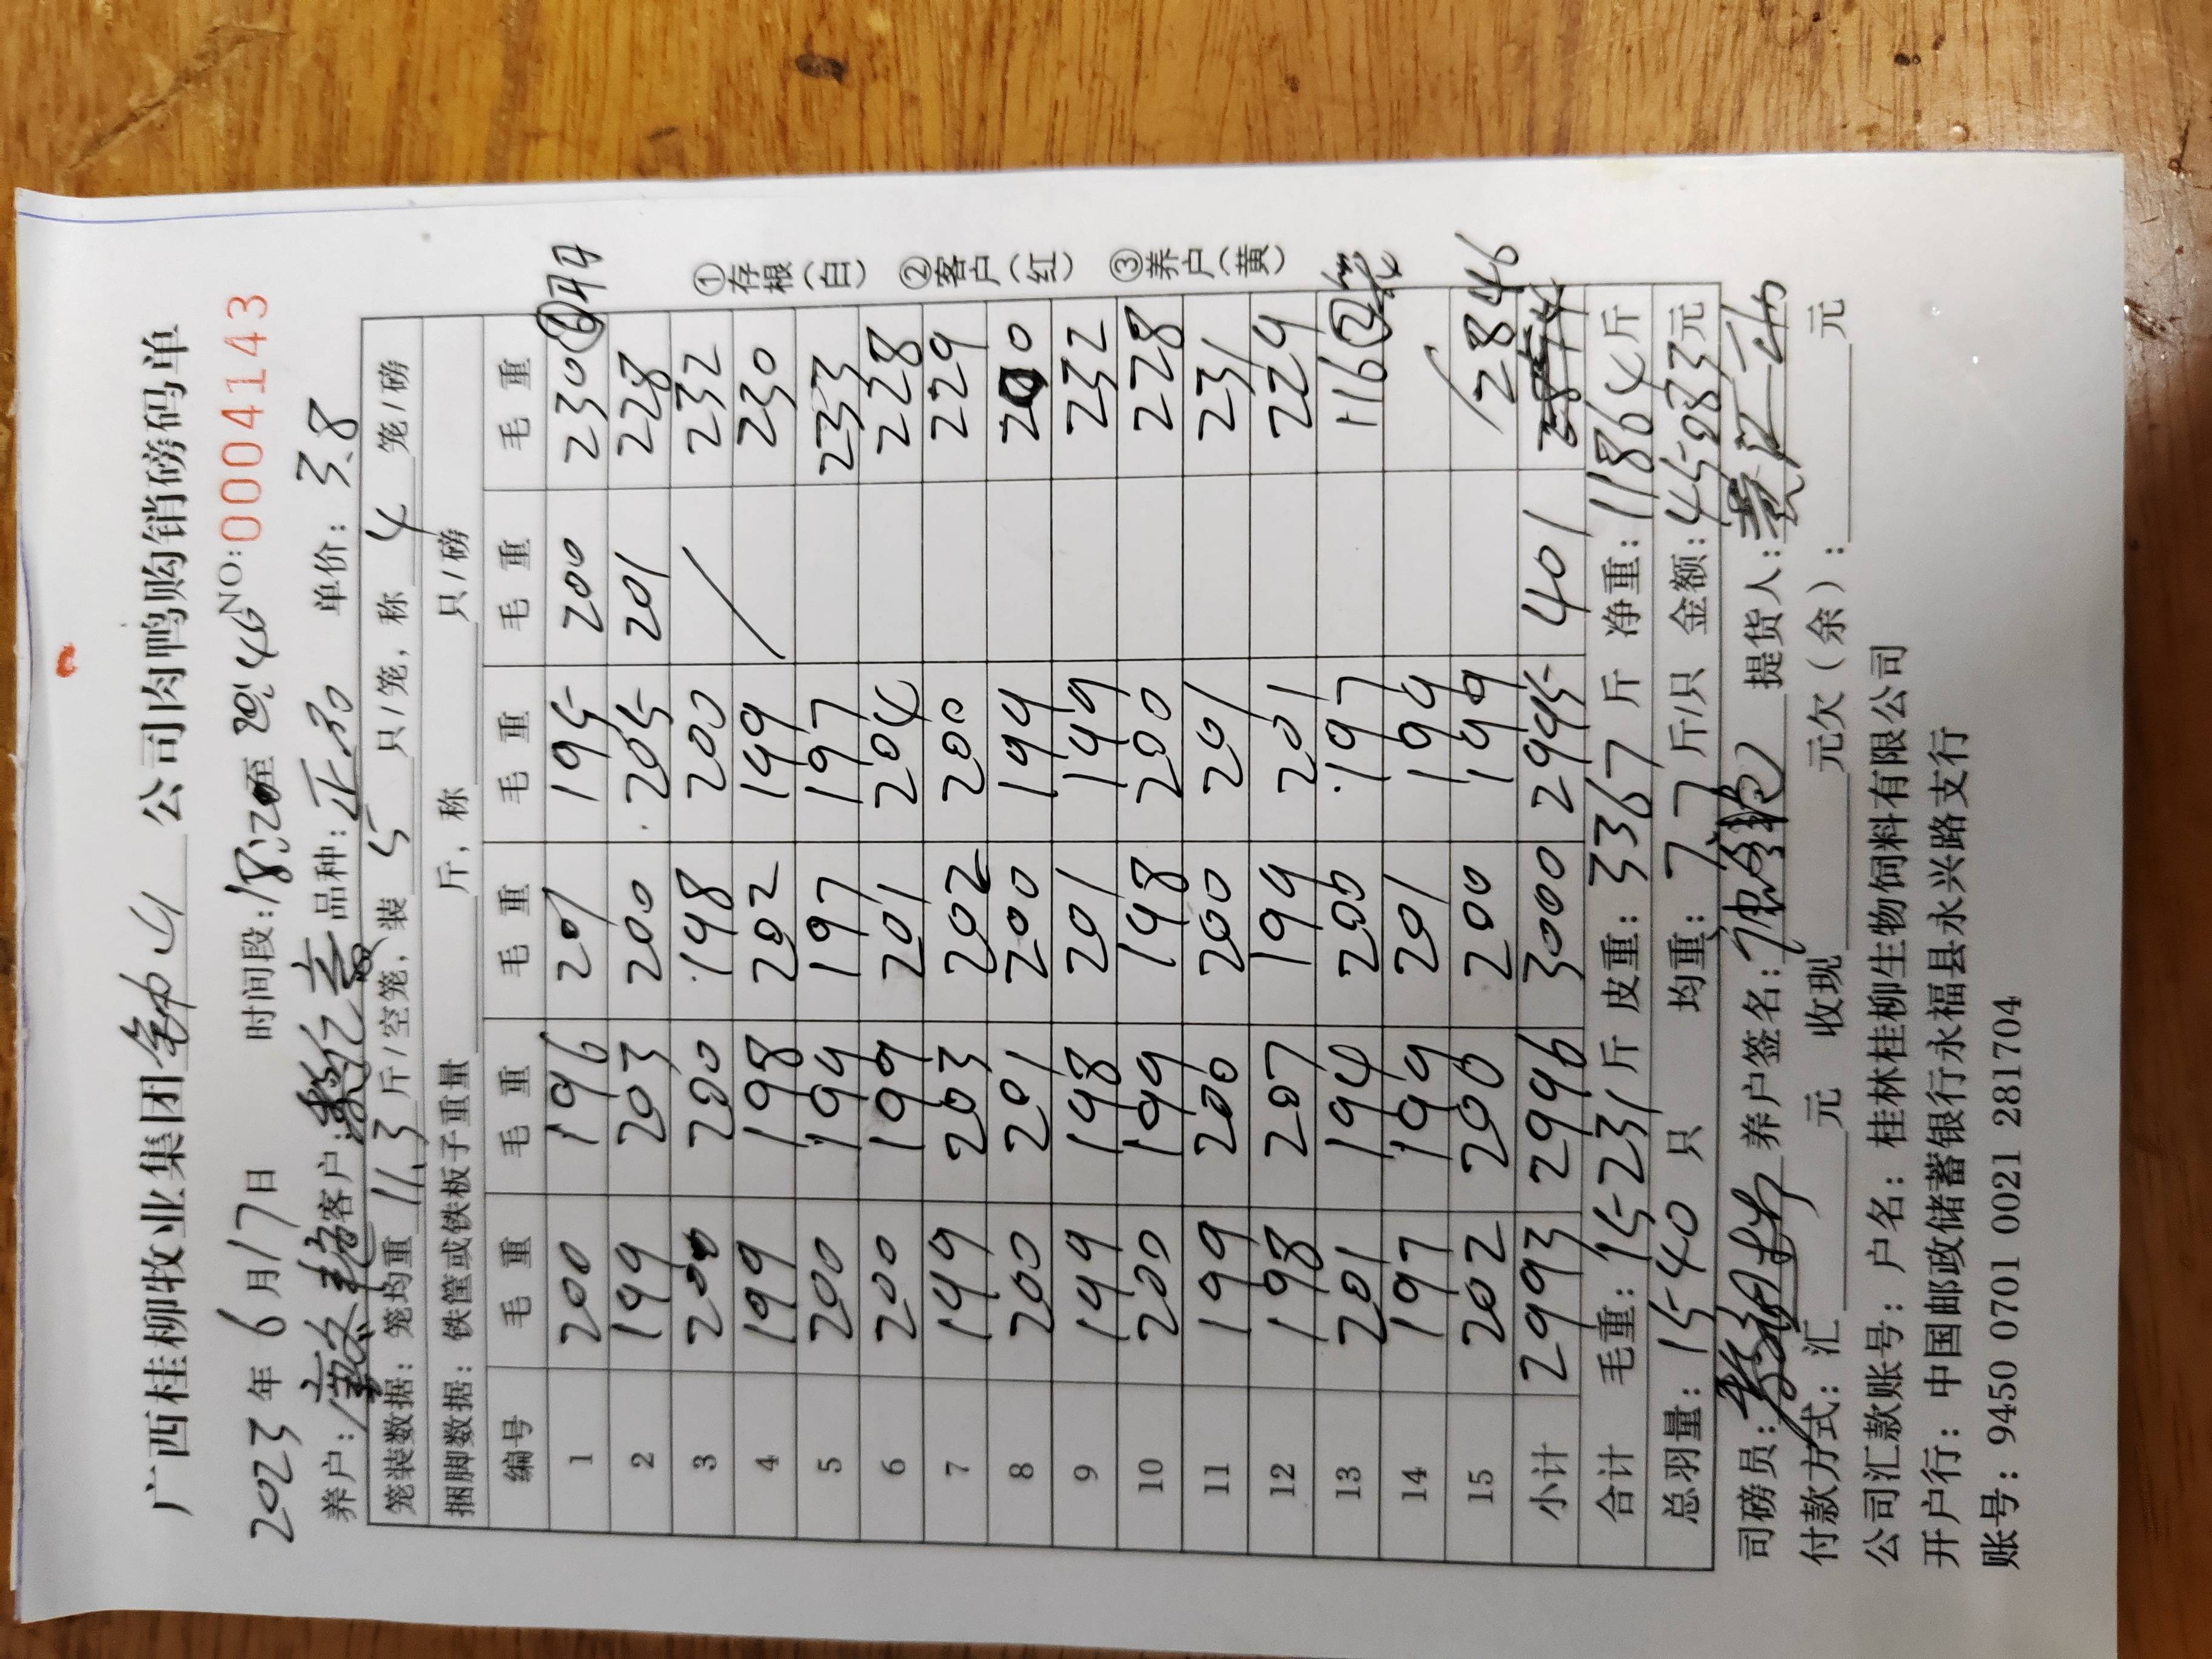 广西桂柳牧业集团 公司肉鸭购销磅码单
2023年6月17日 时间段:18:20至20:46 NO:0004143
养户: 客户: 品种: 单价:3.8
笼装数据:笼均重 11.3 斤/空笼,装 5 只/笼,称 4 笼/磅
捆脚数据:铁筐或铁板子重量 斤,称 只/磅
编号 毛重 毛重 毛重 毛重 毛重 毛重
1 200 196 201 195 200 230
2 199 203 200 205 201 228
3 200 200 198 200 232
4 199 198 202 199 230
5 200 199 197 197 233
6 200 199 201 204 228
7 199 203 202 200 229
8 200 201 200 199
9 199 198 201 199 232
10 200 199 198 200 228
11 199 200 200 201 231
12 198 207 199 201 229
13 201 194 200 197 116
14 197 199 201 199
15 202 200 200 199 2846
小计 2993 2996 3000 2995 401
合计 毛重:15231斤 皮重:3367斤 净重:11864斤
总羽量:1540只 均重:7.7斤/只 金额:45083元
司磅员: 养户签名: 提货人:
付款方式:汇 元 收现 元欠(余): 元
公司汇款账号:户名:桂林桂柳生物饲料有限公司
开户行:中国邮政储蓄银行永福县永兴路支行
账号:9450 0701 0021 2817704
①存根(白) ②客户(红) ③养户(黄)